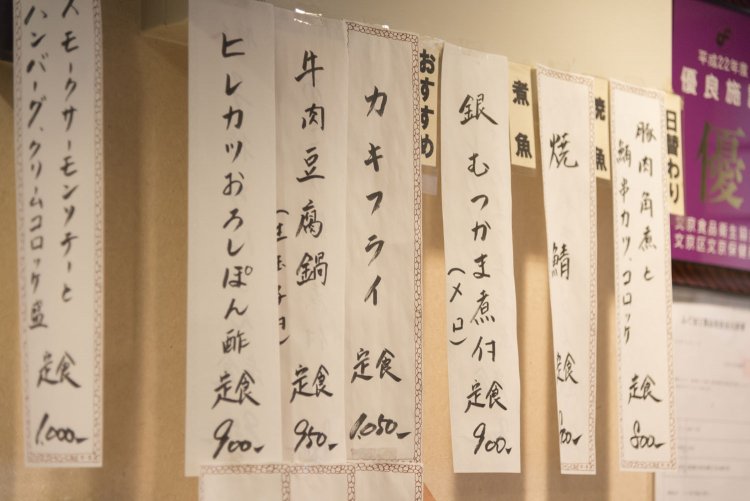 日替わり
豚肉角煮と
絹串カツ、コロッケ
定食
800-
焼魚
焼鯖
定食
煮魚
銀むつかま煮付
(メロ)
定食
900-
おすすめ
カキフライ
定食
1,050-
牛肉豆腐鍋
定食
950-
ヒレカツおろしぽん酢
定食
900-
スモークサーモンソテーと
ハンバーグ、クリームコロッケ盛
定食
1,000-
平成22年度
優良施
優